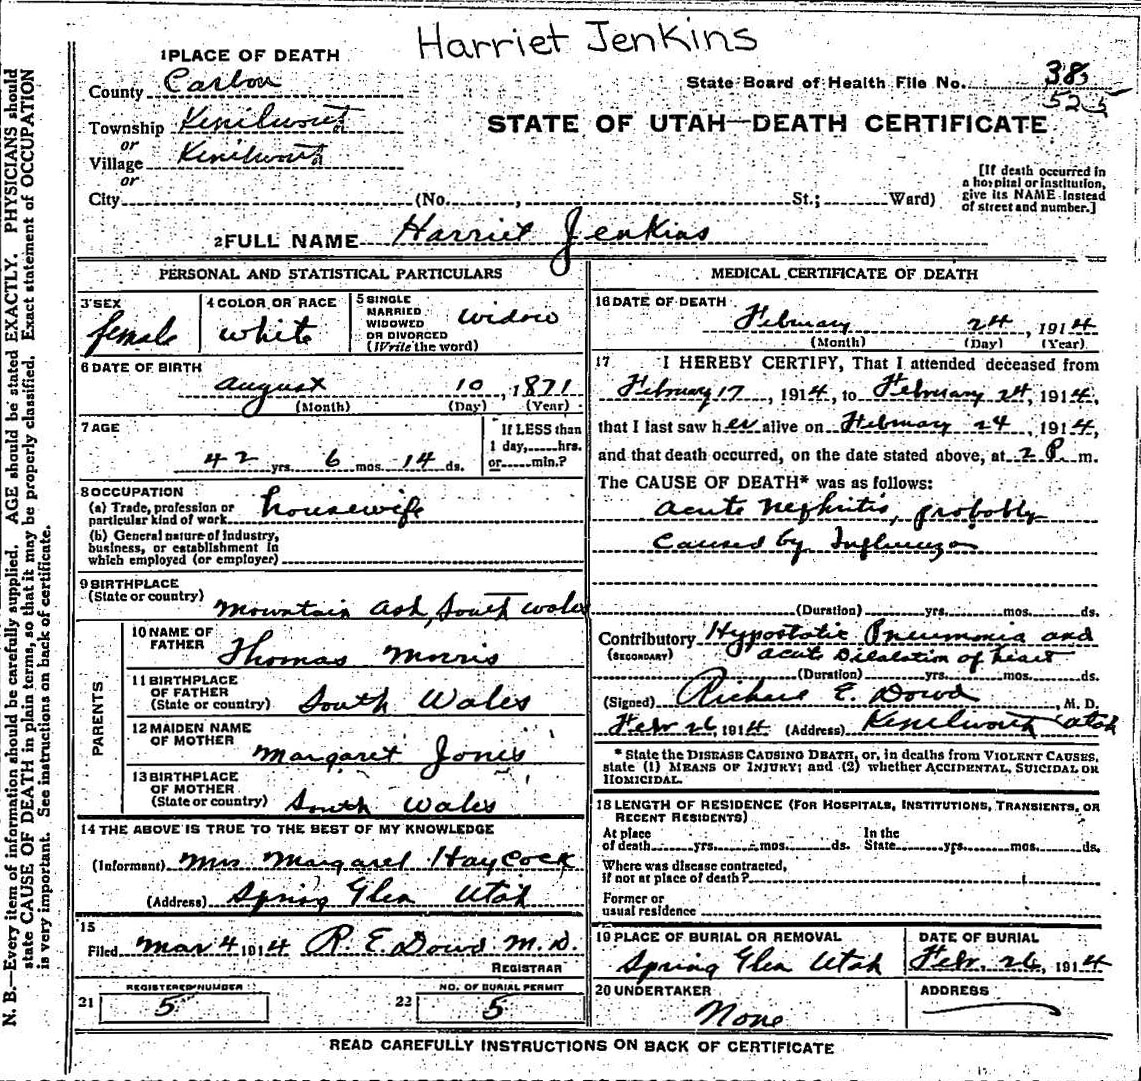 Harriet Jenkins
1 PLACE OF DEATH
County Carbon
State Board of Health File No. 38
525
Township Kenilworth
or
Village Kenilworth
or
STATE OF UTAH—DEATH CERTIFICATE
City (No. , St.; Ward)
[If death occurred in
a hospital or institution,
give its NAME instead
of street and number.]
2 FULL NAME Harriet Jenkins
PERSONAL AND STATISTICAL PARTICULARS
3 SEX
female
4 COLOR OR RACE
white
5 SINGLE
MARRIED
WIDOWED
OR DIVORCED
(Write the word)
widow
6 DATE OF BIRTH
August 10, 1871
(Month) (Day) (Year)
7 AGE
42 yrs. 6 mos. 14 ds.
If LESS than
1 day, hrs.
or min.?
8 OCCUPATION
(a) Trade, profession or
particular kind of work
housewife
(b) General nature of industry,
business, or establishment in
which employed (or employer)
9 BIRTHPLACE
(State or country)
Mountain Ash, South Wales
PARENTS
10 NAME OF
FATHER
Thomas Morris
11 BIRTHPLACE
OF FATHER
(State or country)
South Wales
12 MAIDEN NAME
OF MOTHER
Margaret Jones
13 BIRTHPLACE
OF MOTHER
(State or country)
South Wales
14 THE ABOVE IS TRUE TO THE BEST OF MY KNOWLEDGE
(Informant) Mrs Margaret Haycock
(Address) Spring Glen Utah
15
Filed Mar 4 1914 R. E. Dowd M. D.
REGISTRAR
21 REGISTERED NUMBER
5
22 NO. OF BURIAL PERMIT
5
MEDICAL CERTIFICATE OF DEATH
16 DATE OF DEATH
February 24, 1914
(Month) (Day) (Year)
17 I HEREBY CERTIFY, That I attended deceased from
February 17, 1914, to February 24, 1914,
that I last saw her alive on February 24, 1914,
and that death occurred, on the date stated above, at 2 P. m.
The CAUSE OF DEATH* was as follows:
acute nephritis, probably
caused by Influenza
(Duration) yrs. mos. ds.
Contributory Hypostatic Pneumonia and
(SECONDARY) acute Dilalation of heart
(Duration) yrs. mos. ds.
(Signed) Richard E. Dowd, M. D.
Feb. 26, 1914 (Address) Kenilworth Utah
* State the DISEASE CAUSING DEATH, or, in deaths from VIOLENT CAUSES,
state (1) MEANS OF INJURY; and (2) whether ACCIDENTAL, SUICIDAL OR
HOMICIDAL.
18 LENGTH OF RESIDENCE (FOR HOSPITALS, INSTITUTIONS, TRANSIENTS, OR
RECENT RESIDENTS)
At place
of death yrs. mos. ds.
In the
State yrs. mos. ds.
Where was disease contracted,
if not at place of death?
Former or
usual residence
19 PLACE OF BURIAL OR REMOVAL
Spring Glen Utah
DATE OF BURIAL
Febr. 26, 1914
20 UNDERTAKER
None
ADDRESS
READ CAREFULLY INSTRUCTIONS ON BACK OF CERTIFICATE
N. B.—Every item of information should be carefully supplied. AGE should be stated EXACTLY. PHYSICIANS should
state CAUSE OF DEATH in plain terms, so that it may be properly classified. Exact statement of OCCUPATION
is very important. See instructions on back of certificate.